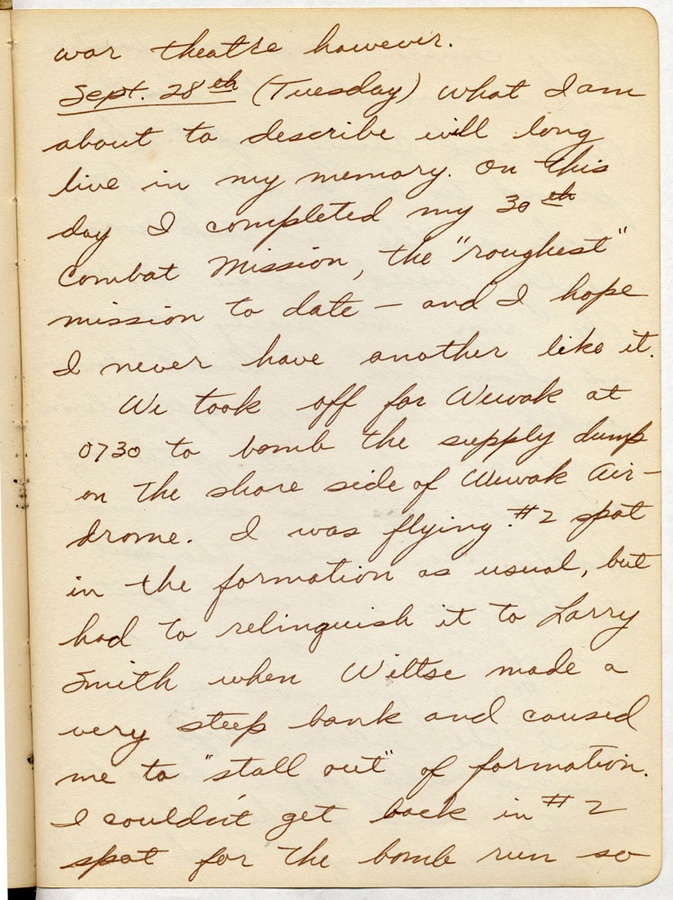 war theatre however.
Sept. 28th (Tuesday) What I am
about to describe will long
live in my memory. On this
day I completed my 30th
Combat Mission, the "roughest"
mission to date – and I hope
I never have another like it.
We took off for Wewak at
0730 to bomb the supply dump
on the shore side of Wewak Air-
drome. I was flying #2 spot
in the formation as usual, but
had to relinquish it to Larry
Smith when Wiltse made a
very steep bank and caused
me to "stall out" of formation.
I couldn't get back in #2
spot for the bomb run so